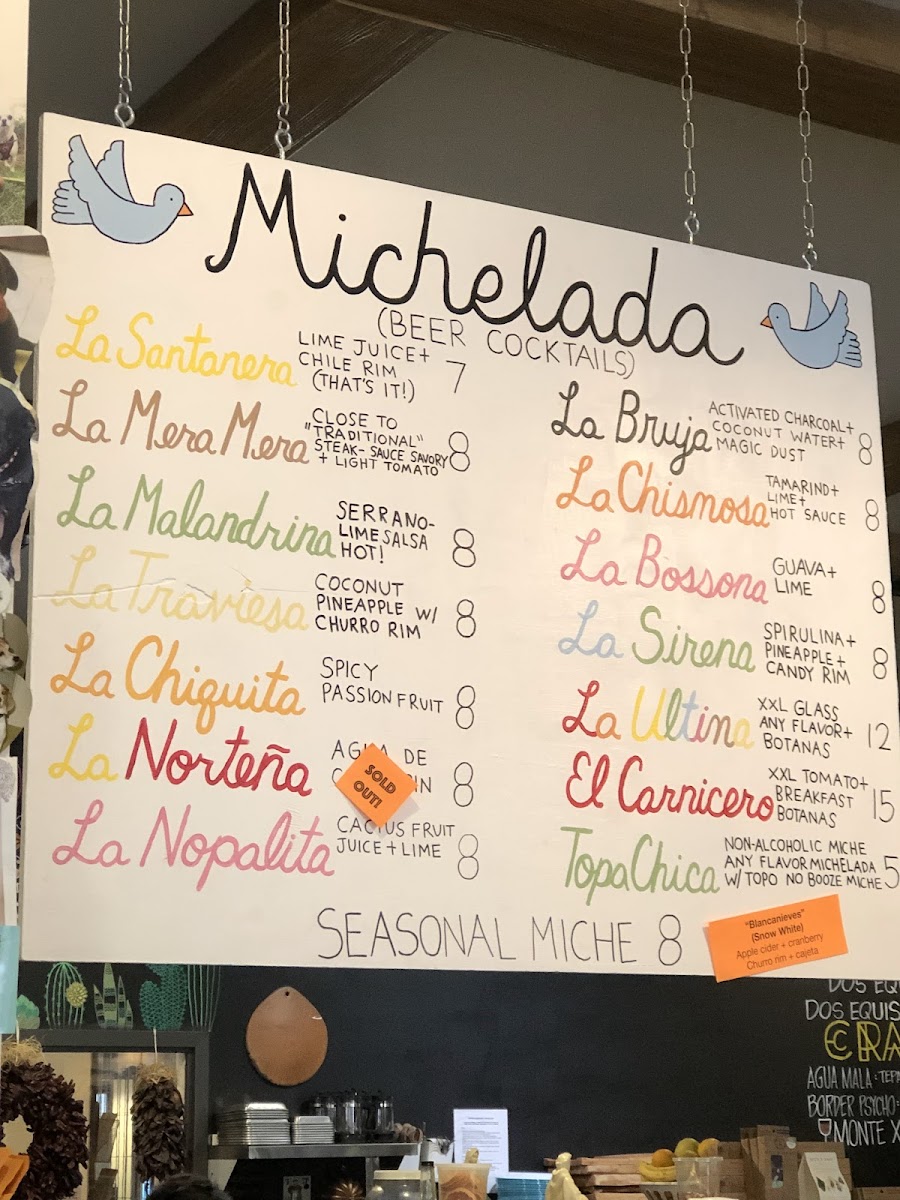 Michelada
(BEER COCKTAILS)
La Santanera
LIME JUICE+
CHILE RIM
(THAT'S IT!)
7
La Mera Mera
CLOSE TO
"TRADITIONAL"
STEAK-SAUCE SAVORY
+ LIGHT TOMATO
8
La Malandrina
SERRANO-
LIME SALSA
HOT!
8
La Traviesa
COCONUT
PINEAPPLE W/
CHURRO RIM
8
La Chiquita
SPICY
PASSION FRUIT
8
La Norteña
AGUA DE
SOLD
OUT!
8
La Nopalita
CACTUS FRUIT
JUICE + LIME
8
La Bruja
ACTIVATED CHARCOAL+
COCONUT WATER+
MAGIC DUST
8
La Chismosa
TAMARIND+
LIME+
HOT SAUCE
8
La Bossona
GUAVA+
LIME
8
La Sirena
SPIRULINA+
PINEAPPLE+
CANDY RIM
8
La Ultina
XXL GLASS
ANY FLAVOR+
BOTANAS
12
El Carnicero
XXL TOMATO+
BREAKFAST
BOTANAS
15
Topa Chica
NON-ALCOHOLIC MICHE
ANY FLAVOR MICHELADA
W/ TOPO NO BOOZE MICHE
5
SEASONAL MICHE 8
"Blancanieves"
(Snow White)
Apple cider + cranberry
Churro rim + cajeta
DOS EQU
DOS EQUIS
CRA
AGUA MALA: TEPA
BORDER PSYCHO:
MONTE X